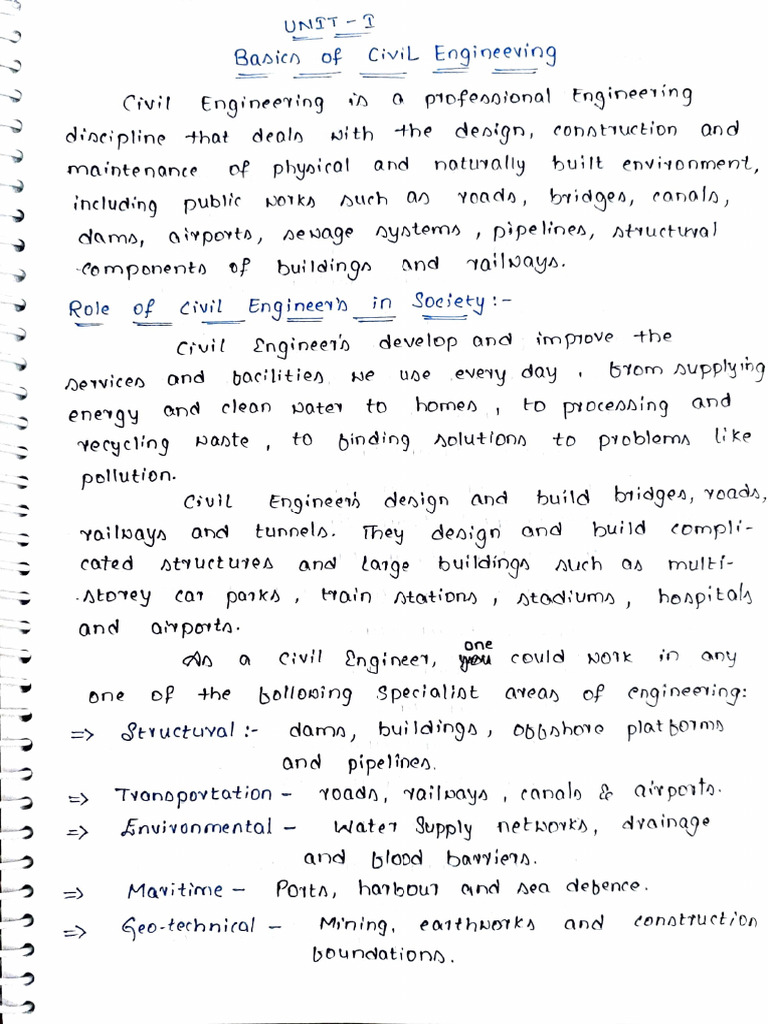 UNIT - I
Basics of Civil Engineering
Civil Engineering is a professional Engineering
discipline that deals with the design, construction and
maintenance of physical and naturally built environment,
including public works such as roads, bridges, canals,
dams, airports, sewage systems, pipelines, structural
components of buildings and railways.
Role of Civil Engineer's in Society:-
Civil Engineer's develop and improve the
services and facilities we use every day, from supplying
energy and clean water to homes, to processing and
recycling waste, to finding solutions to problems like
pollution.
Civil Engineer's design and build bridges, roads,
railways and tunnels. They design and build compli-
cated structures and large buildings such as multi-
storey car parks, train stations, stadiums, hospitals
and airports.
As a Civil Engineer, one could work in any
one of the following specialist areas of engineering:
=> Structural :- dams, buildings, offshore platforms
and pipelines.
=> Transportation - roads, railways, canals & airports.
=> Environmental - Water Supply networks, drainage
and flood barriers.
=> Maritime - Ports, harbour and sea defence.
=> Geo-technical - Mining, earthworks and construction
foundations.